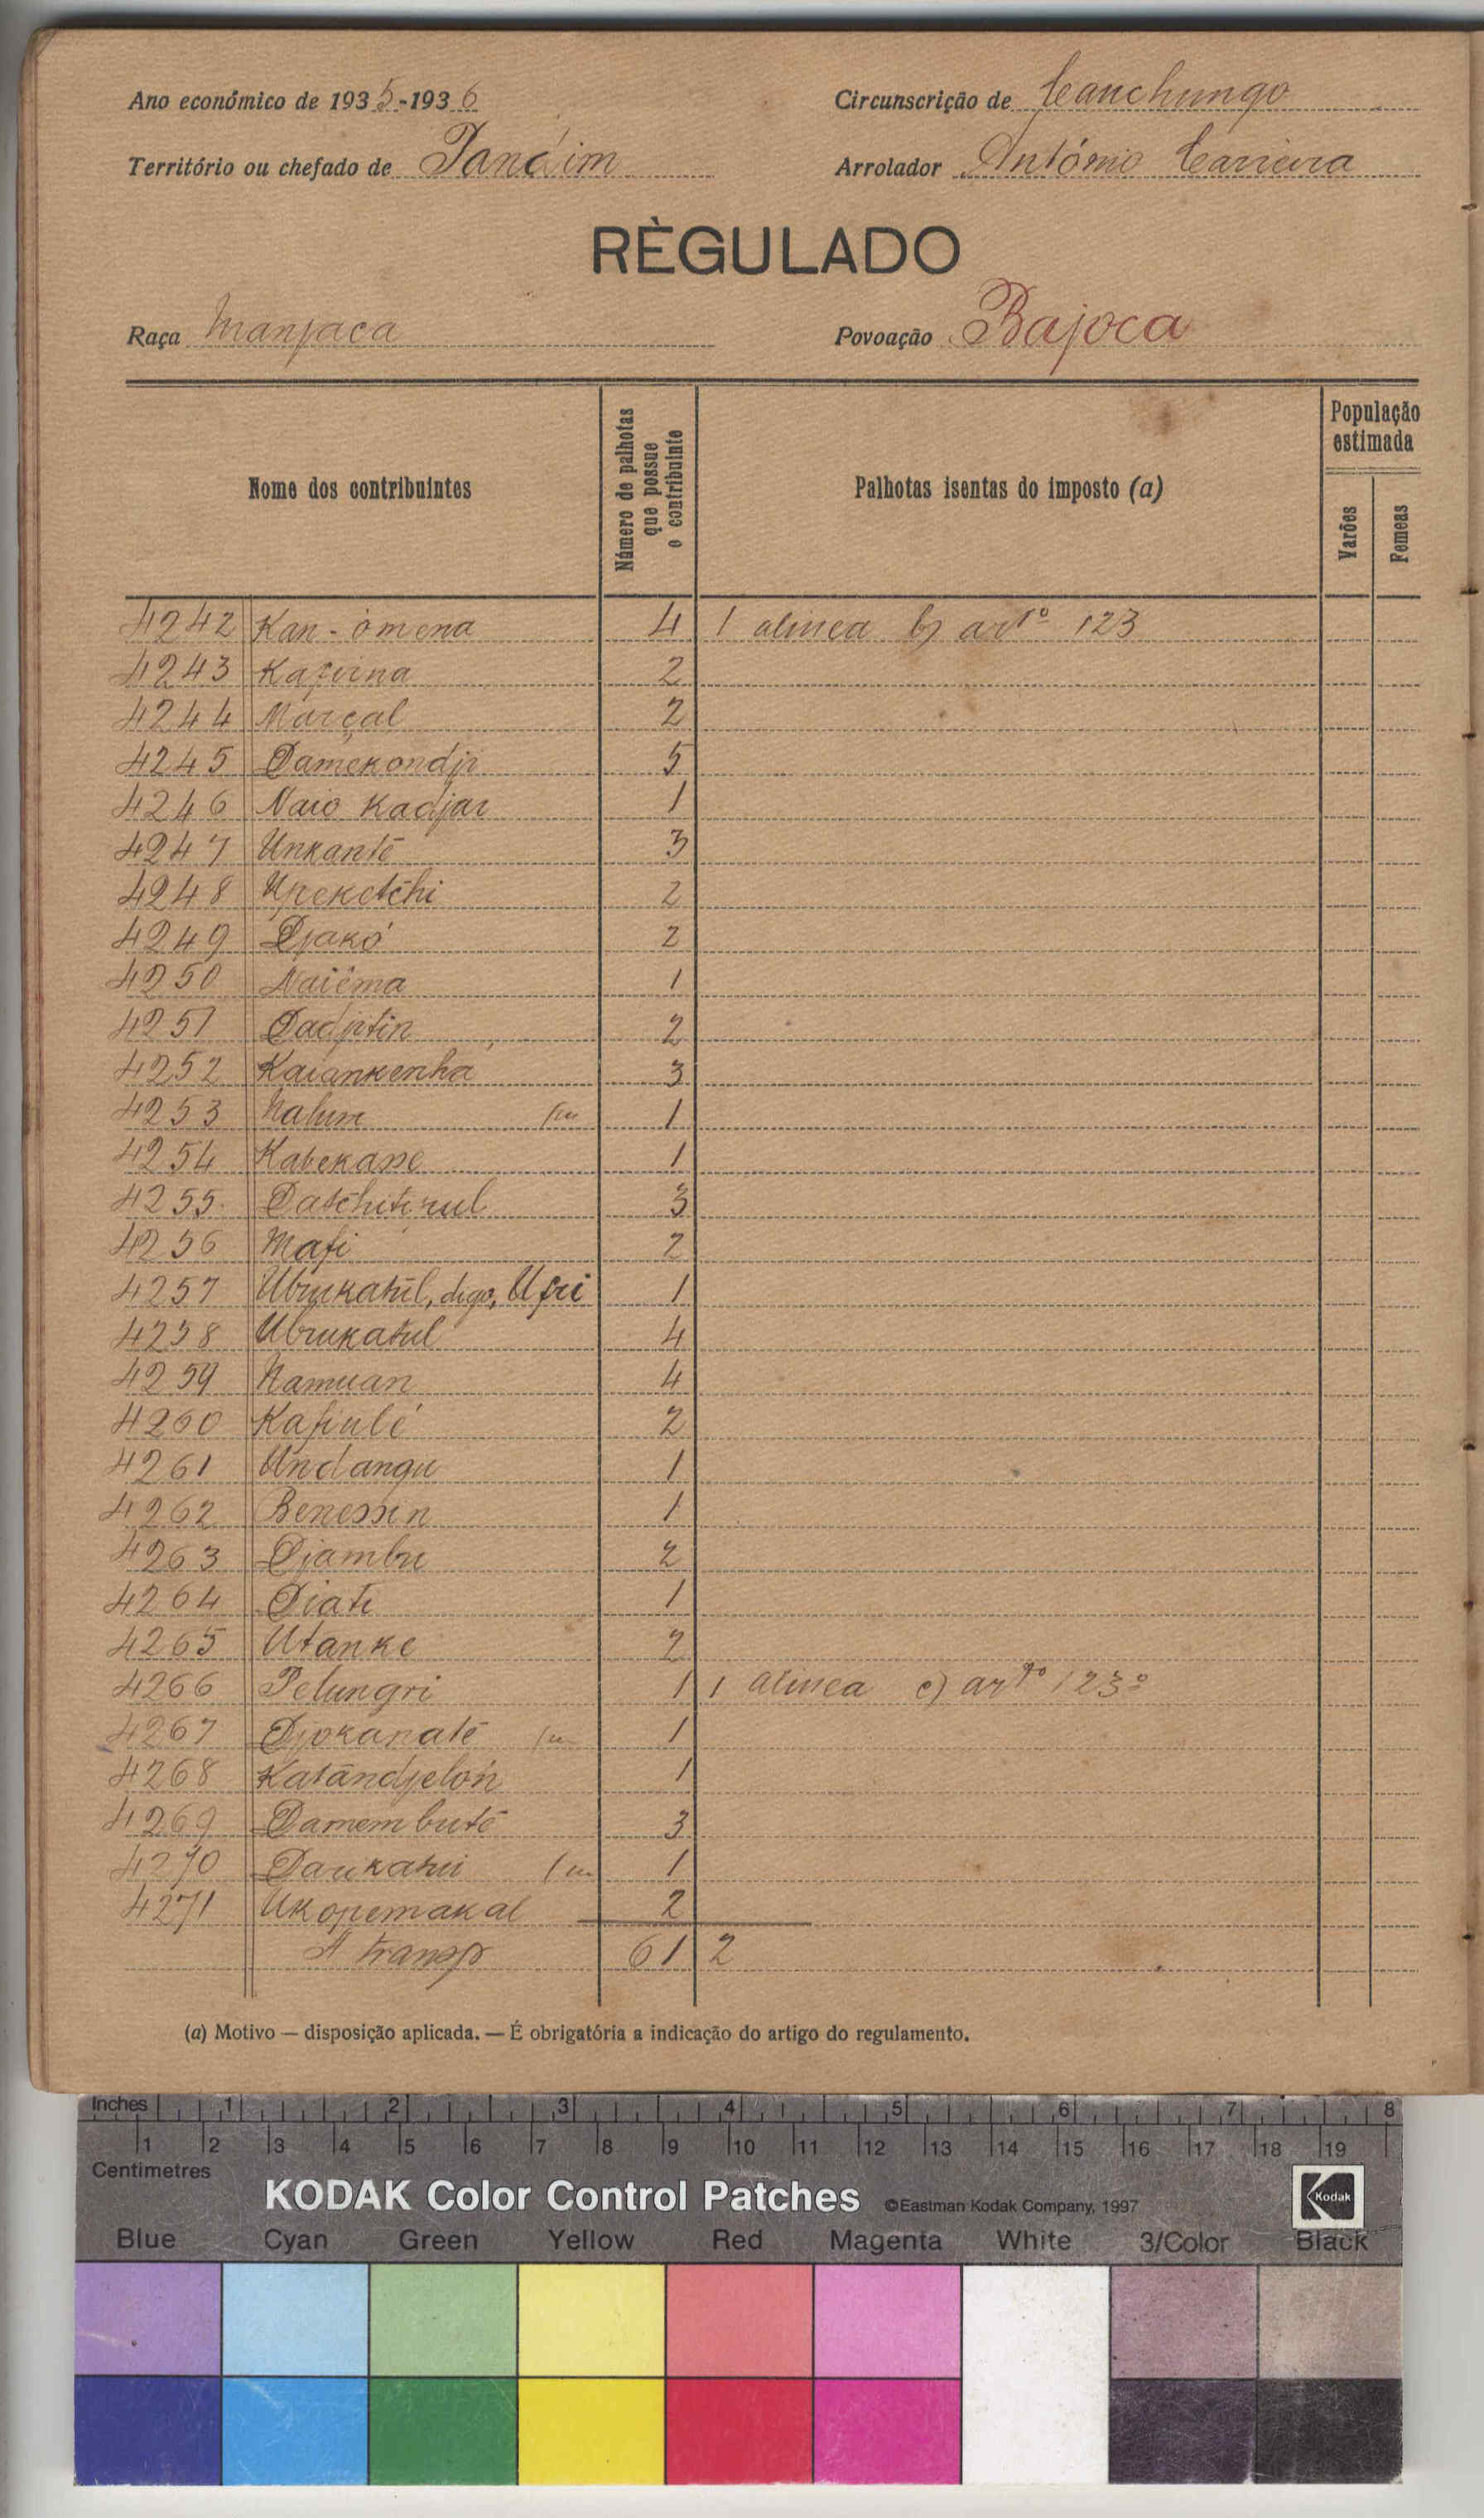 Ano económico de 1935-1936 Circunscrição de Canchungo
Território ou chefado de Pandim Arrolador António Carreira
RÈGULADO
Raça Manjaca Povoação Bajoca
Nome dos contribuintes
Número de palhotas que possue o contribuinte
Palhotas isentas do imposto (a)
População estimada
Varões
Femeas
4242 Kan-ómena 4 1 alinea b) artº 123
4243 Kafrina 2
4244 Marçal 2
4245 Damekondji 5
4246 Naio Kadjar 1
4247 Unkanté 3
4248 Upeketchi 2
4249 Djakó 2
4250 Naiêma 1
4251 Dadjitin 2
4252 Kaiankenha 3
4253 Nalum 1
4254 Kabekane 1
4255 Datchitirul 3
4256 Mafi 2
4257 Ubrukatul, digo, Ufri 1
4258 Ubrukatul 4
4259 Namuan 4
4260 Kafiulé 2
4261 Undangu 1
4262 Benessin 1
4263 Djambu 2
4264 Diati 1
4265 Utanke 2
4266 Pelungri 1 1 alinea c) artº 123º
4267 Djokanaté 1
4268 Katandjelón 1
4269 Damembuté 3
4270 1
4271 Ukopemakal 2
A transp 61 2
(a) Motivo — disposição aplicada. — É obrigatória a indicação do artigo do regulamento.
Inches 1 2 3 4 5 6 7 8
1 2 3 4 5 6 7 8 9 10 11 12 13 14 15 16 17 18 19
Centimetres
KODAK Color Control Patches ©Eastman Kodak Company, 1997 Kodak
Blue Cyan Green Yellow Red Magenta White 3/Color Black